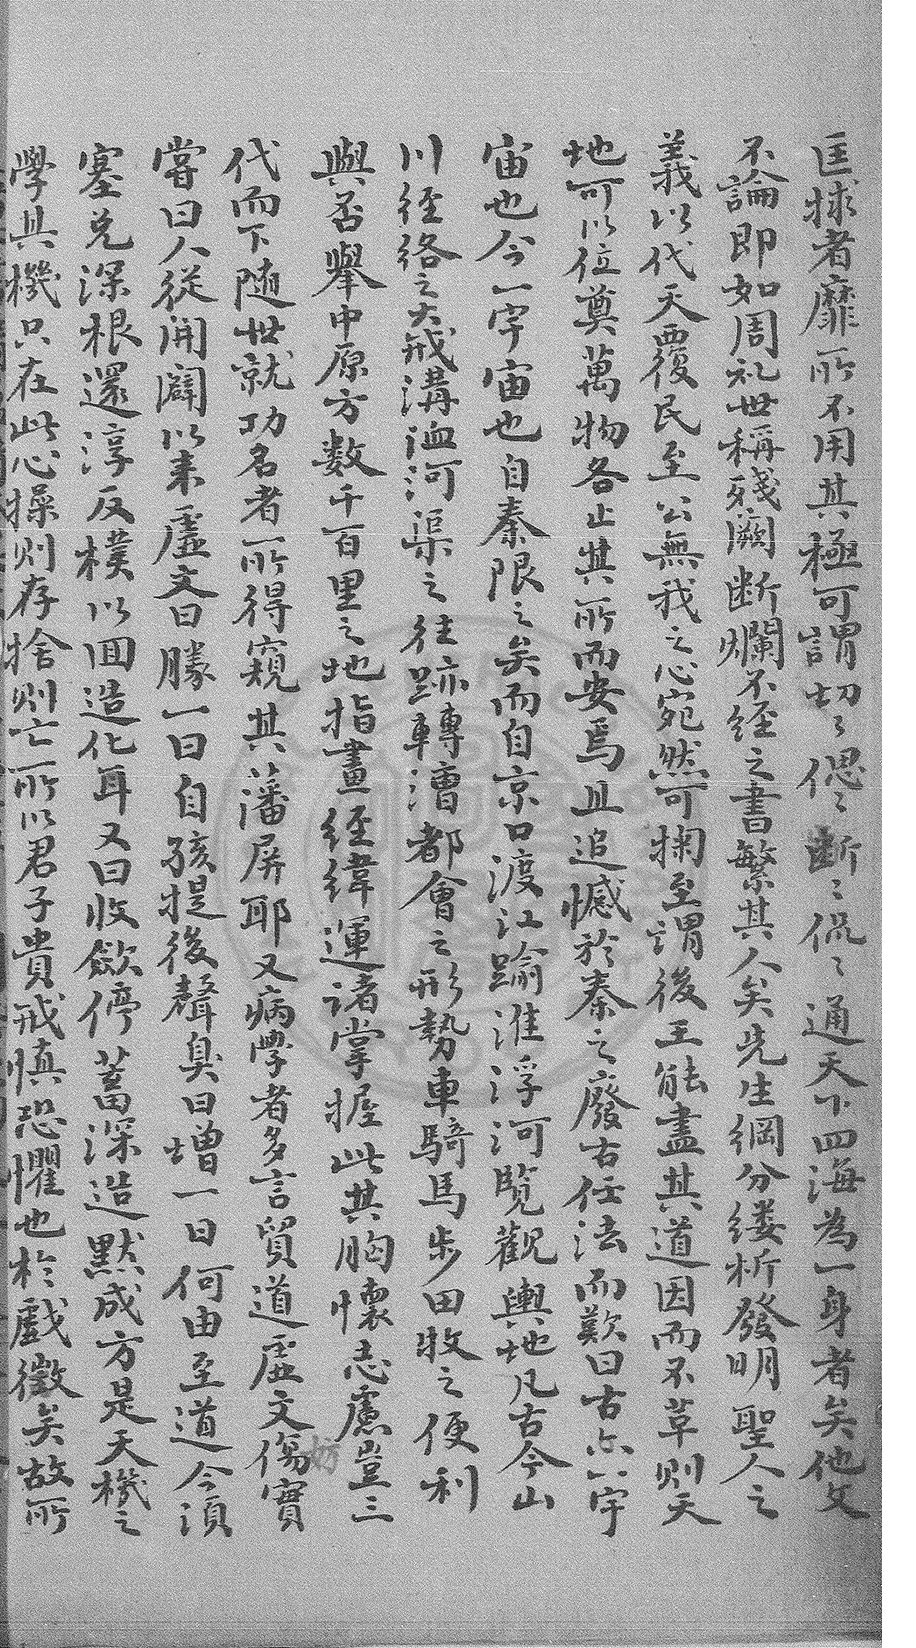 匡捄者靡所不用其極可謂切〻偲〻斷〻侃〻通天下四海為一身者矣他文
不論即如周礼世稱殘闕断爛不經之書繁其人矣先生綱分縷析發明聖人之
義以代天覆民至公無我之心宛然可掬至謂後王能盡其道因而不革則天
地可以位奠萬物各止其所而安焉且追憾於秦之廢古任法而歎曰古亦一宇
宙也今一宇宙也自秦限之矣而自京口渡江踰淮浮河覽觀輿地凡古今山
川徑絡之大戒溝洫河渠之往跡轉漕都會之形勢車騎馬步田牧之便利
與否舉中原方数千百里之地指畫經緯運諸掌握此其胸懷志慮豈三
代而下随世就功名者所得窺其藩屏耶又病學者多言貿道虛文傷實
嘗曰人從開闢以来虛文日勝一日自孩提後聲臭日增一日何由至道今須
塞兌深根還淳反樸以囬造化耳又曰收歛停蓄深造默成方是天機之
學其機只在此心操則存捨則亡所以君子貴戒慎恐懼也於戲微矣故所
妨